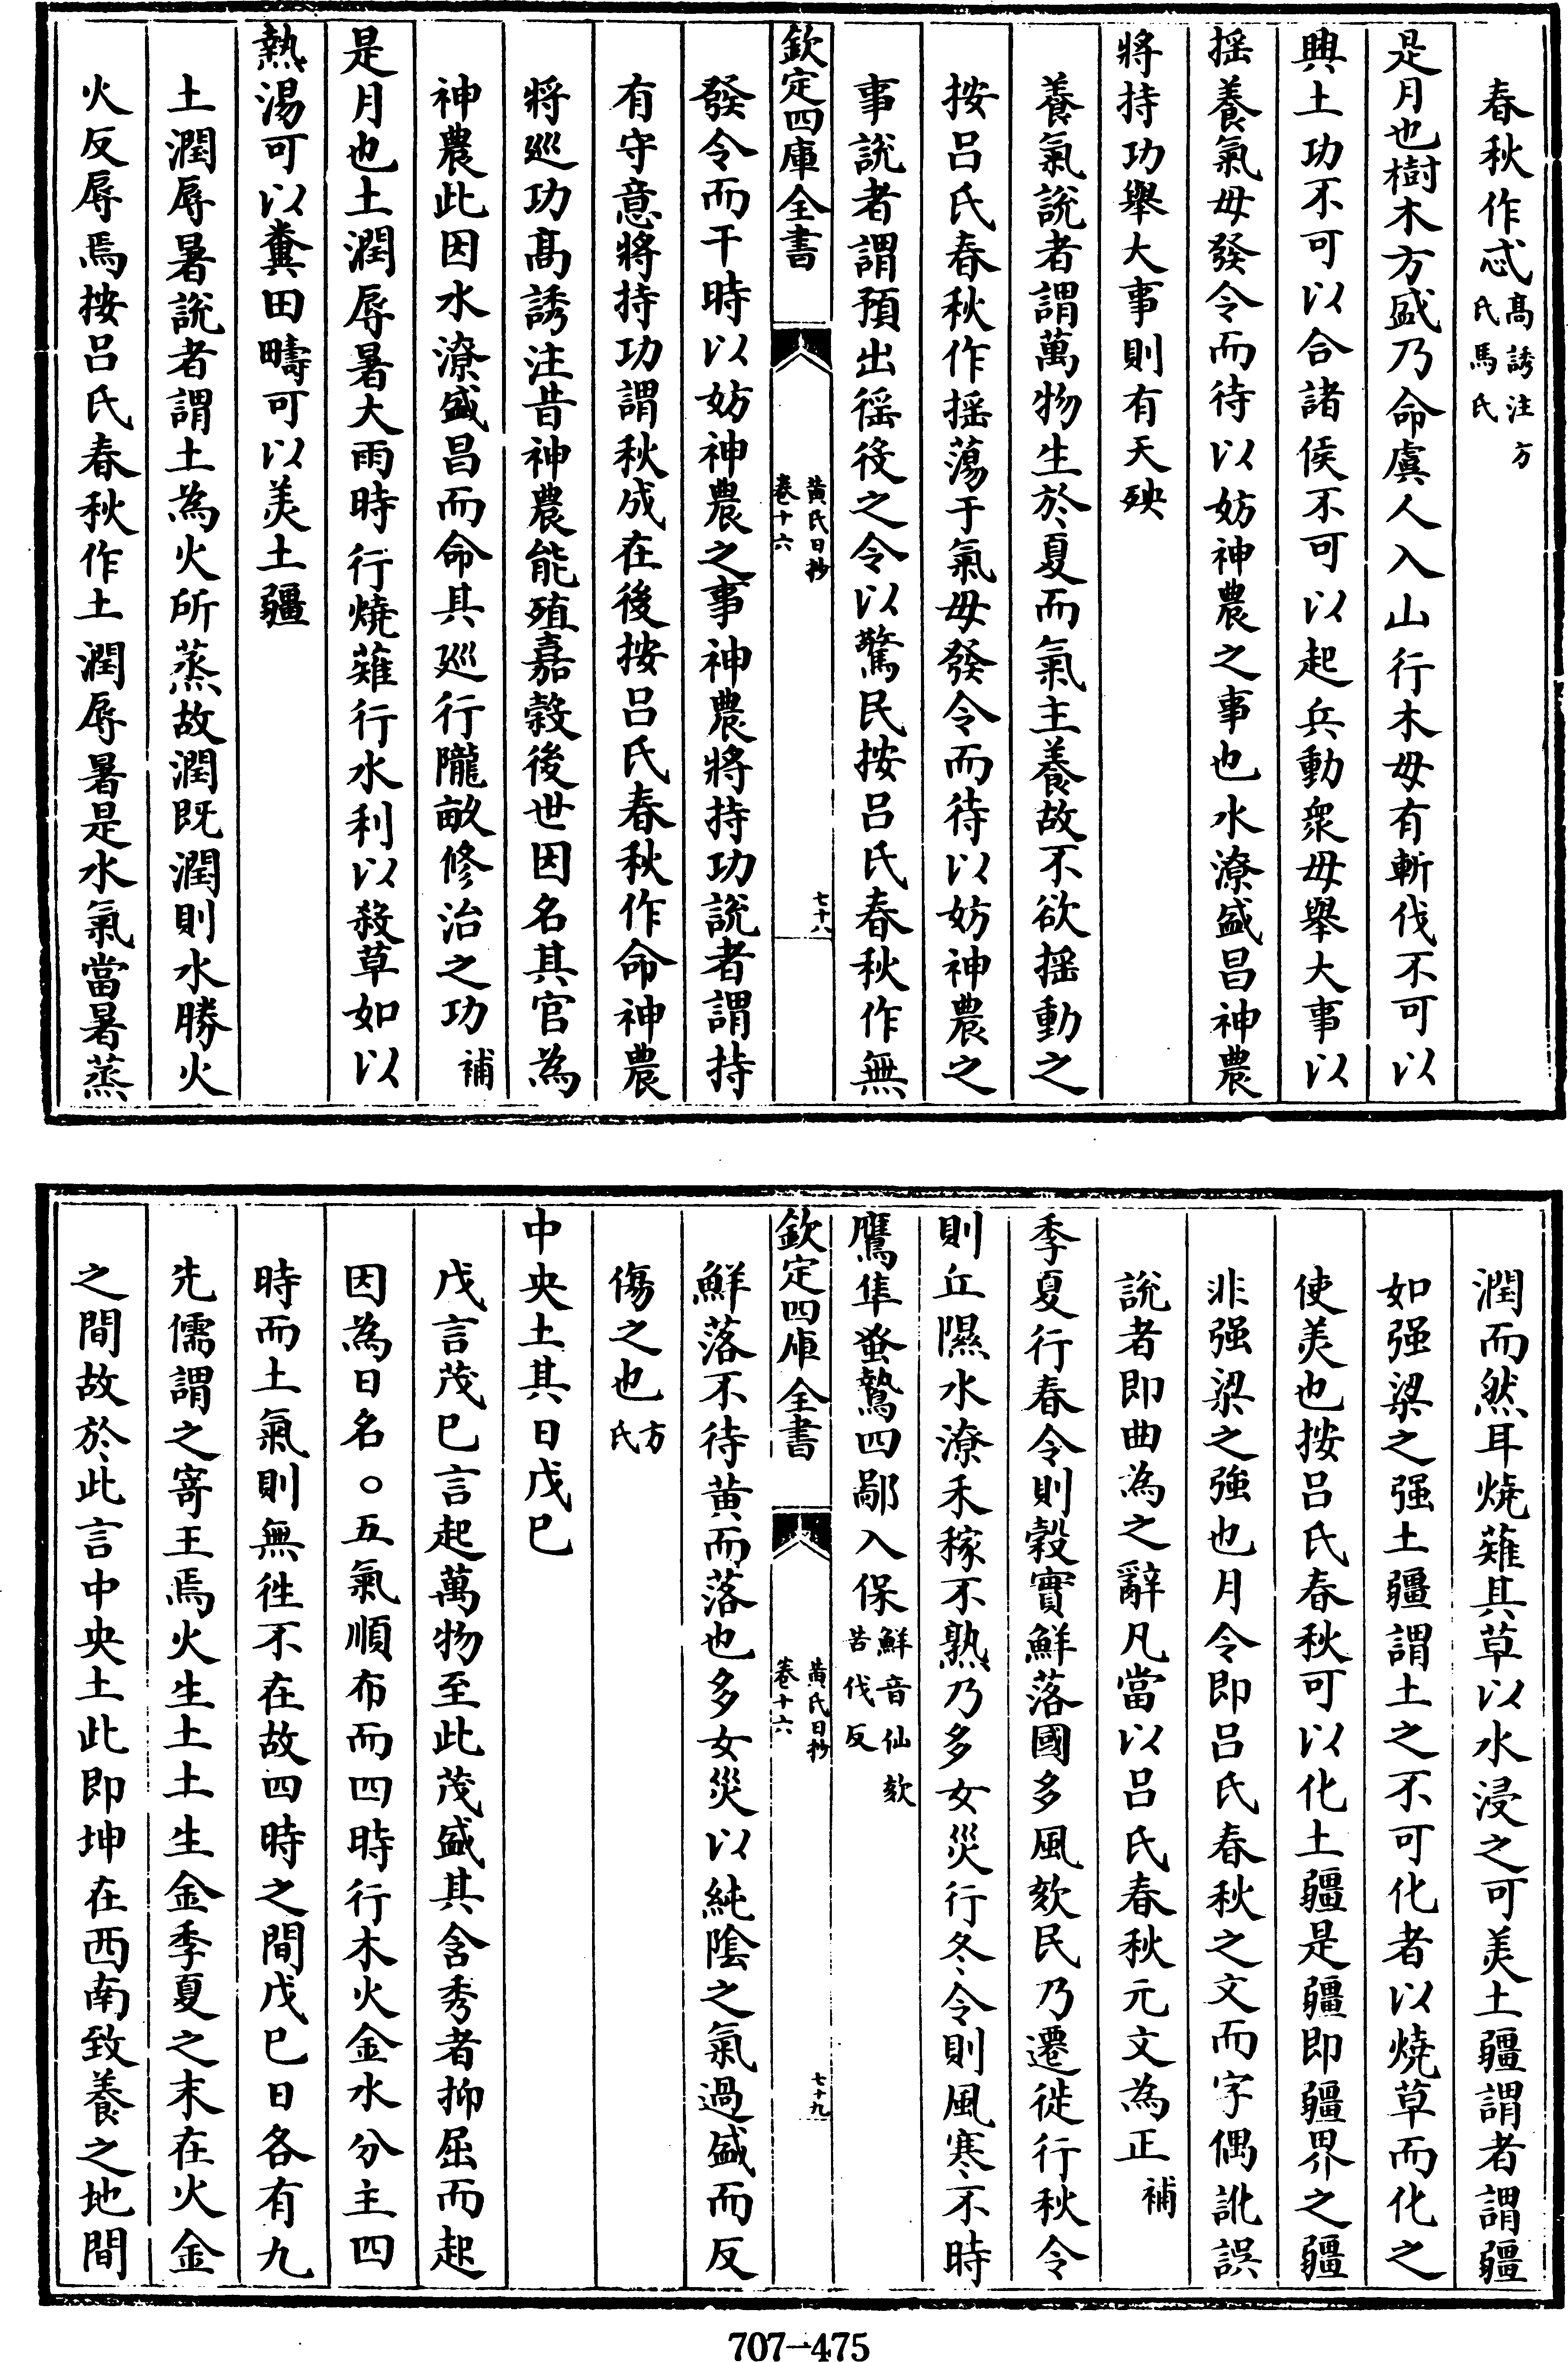 春秋作忒高誘注方氏馬氏
是月也樹木方盛乃命虞人入山行木毋有斬伐不可以
興土功不可以合諸侯不可以起兵動衆毋舉大事以
摇養氣毋發令而待以妨神農之事也水潦盛昌神農
將持功舉大事則有天殃
養氣說者謂萬物生於夏而氣主養故不欲揺動之
按吕氏春秋作揺蕩于氣毋發令而待以妨神農之
事說者謂預出徭役之令以驚民按吕氏春秋作無
欽定四庫全書
黄氏日抄
卷十六
七十八
發令而干時以妨神農之事神農將持功說者謂持
有守意將持功謂秋成在後按吕氏春秋作命神農
將廵功髙誘注昔神農能殖嘉榖後世因名其官為
神農此因水潦盛昌而命其廵行隴畝修治之功補
是月也土潤辱暑大雨時行燒薙行水利以殺草如以
熱湯可以糞田疇可以美土疆
土潤辱暑說者謂土為火所蒸故潤既潤則水勝火
火反辱焉按吕氏春秋作土潤辱暑是水氣當暑蒸
潤而然耳燒薙其草以水浸之可美土疆謂者謂疆
如强梁之强土疆謂土之不可化者以燒草而化之
使美也按吕氏春秋可以化土疆是疆即疆界之疆
非强梁之強也月令即吕氏春秋之文而字偶訛誤
說者即曲為之辭凡當以吕氏春秋元文為正補
季夏行春令則榖實鮮落國多風欬民乃遷徙行秋令
則丘隰水潦禾稼不熟乃多女災行冬令則風寒不時
鷹隼蚤鷙四鄙入保鮮音仙欬苦伐反
欽定四庫全書
黄氏日抄
卷十六
七十九
鮮落不待黄而落也多女災以純隂之氣過盛而反
傷之也方氏
中央土其日戊巳
戊言茂巳言起萬物至此茂盛其含秀者抑屈而起
因為日名○五氣順布而四時行木火金水分主四
時而土氣則無徃不在故四時之間戊巳日各有九
先儒謂之寄王焉火生土土生金季夏之末在火金
之間故於此言中央土此即坤在西南致養之地間
707-475